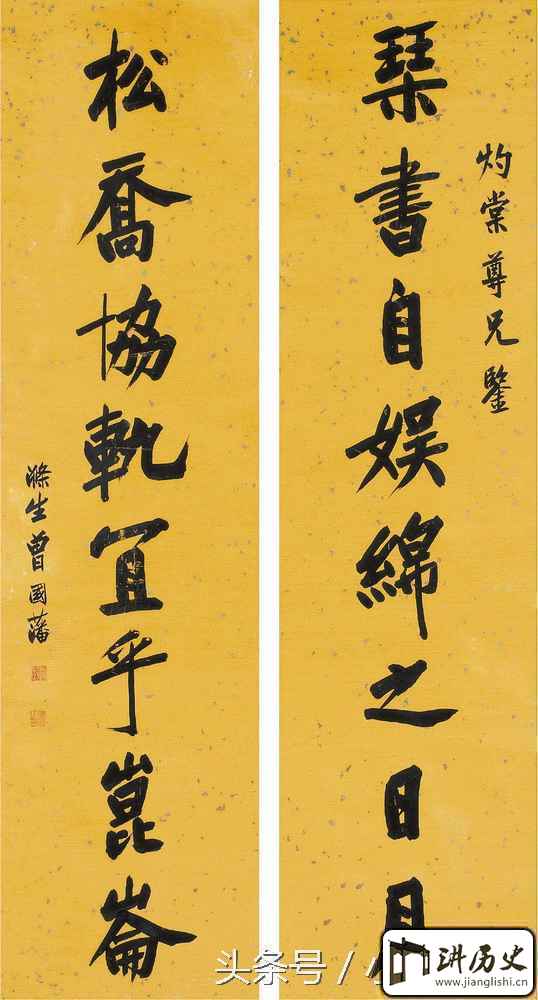 灼棠尊兄鑒
琹書自娱綿之日月
松喬協軌冝乎崑崙
滌生曾國藩
头条号 /
讲历史
www.jianglishi.cn